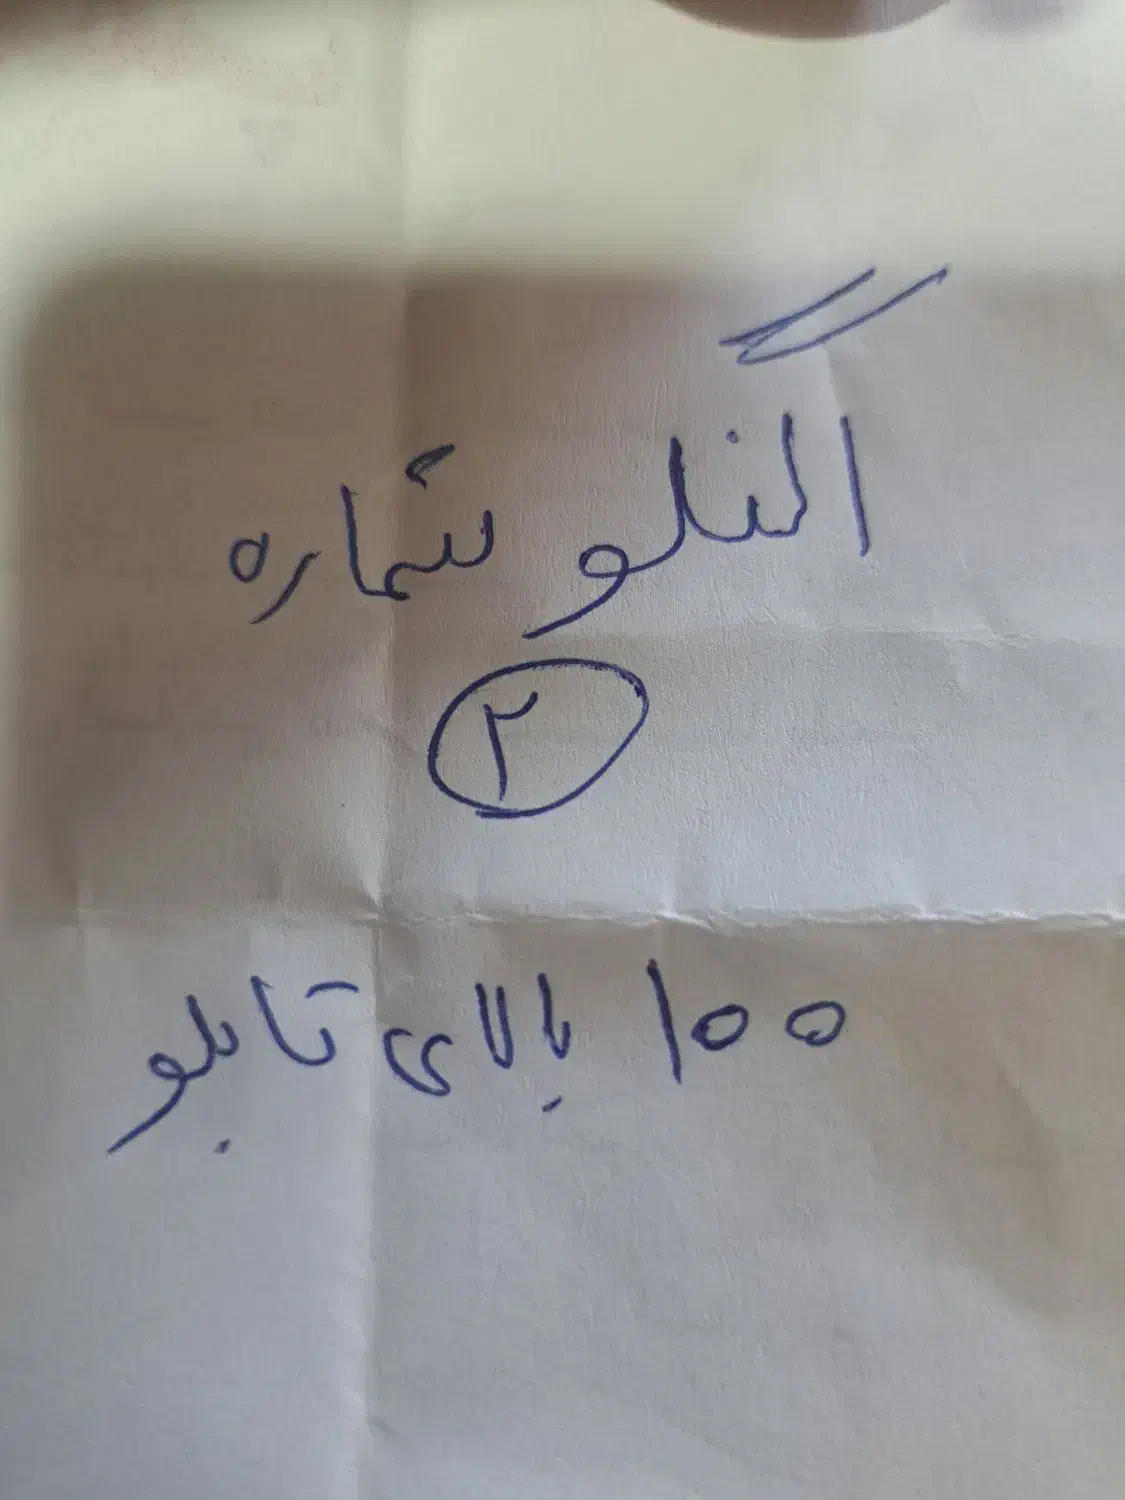 النگو شماره
۲
۱۰۰ بالای تابلو